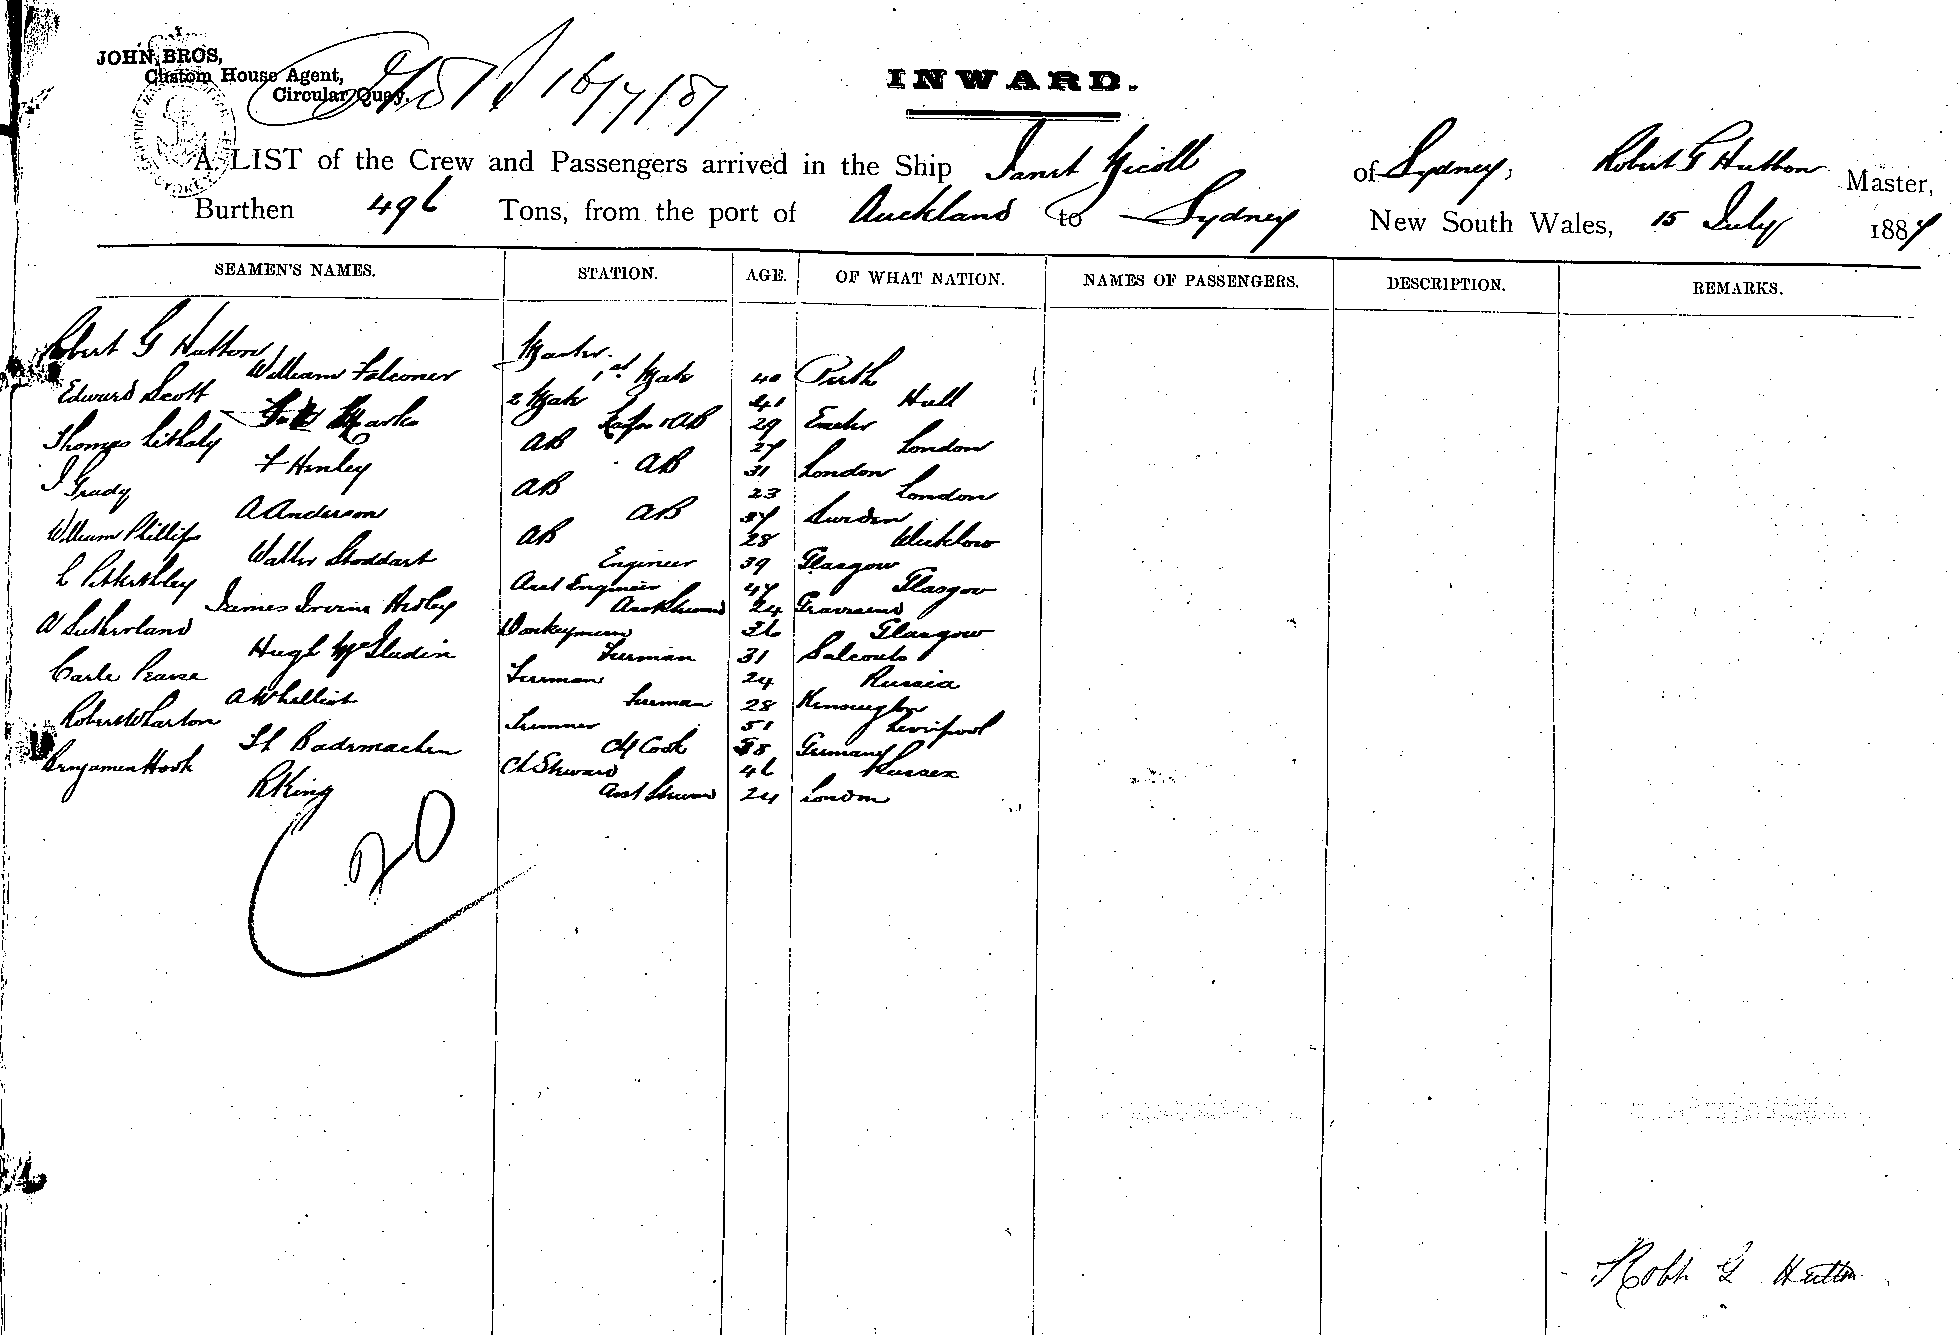 JOHN BROS,
Custom House Agent,
Circular Quay.
16/7/87
INWARD.
A LIST of the Crew and Passengers arrived in the Ship Janet Nicoll of Sydney, Robert G Hutton Master,
Burthen 496 Tons, from the port of Auckland to Sydney New South Wales, 15 July 1887
SEAMEN'S NAMES. STATION. AGE. OF WHAT NATION. NAMES OF PASSENGERS. DESCRIPTION. REMARKS.
Robert G Hutton Master
William Falconer 1st Mate 40 Perth
Edward Scott 2 Mate 41 Hull
Marks AB 29 Exeter
Thomas AB 27 London
F Henley AB 31 London
J Grady AB 23 London
A Anderson AB 37 Sweden
William Phillips AB 28 Wicklow
Walter Stoddart Engineer 39 Glasgow
L Asst Engineer 47 Glasgow
James Irvine Asst 24 Gravesend
A Sutherland Donkeyman 36 Glasgow
Hugh Fireman 31 Salcoats
Carle Pearse Fireman 24 Russia
A Whelliet Fireman 28 Kensington
Robert Wharton Trimmer 51 Liverpool
Badsmachen Ch Cook 38 Germany
Benjamen Hook Ch Steward 46 Sussex
R King Asst Steward 24 London
20
Robt G Hutton